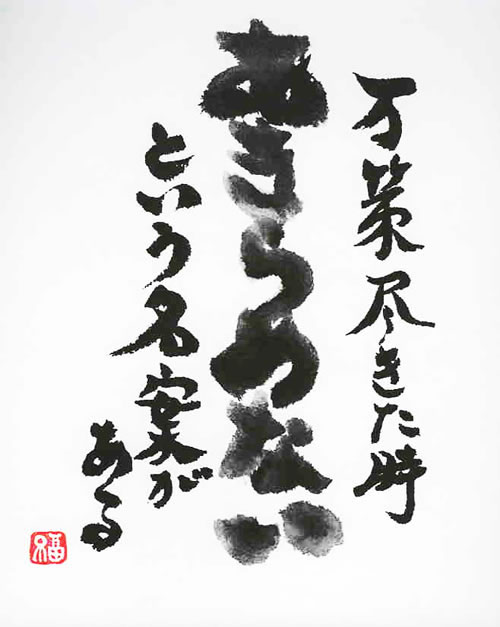 万策尽きた時
あきらめない
という名案が
ある
福